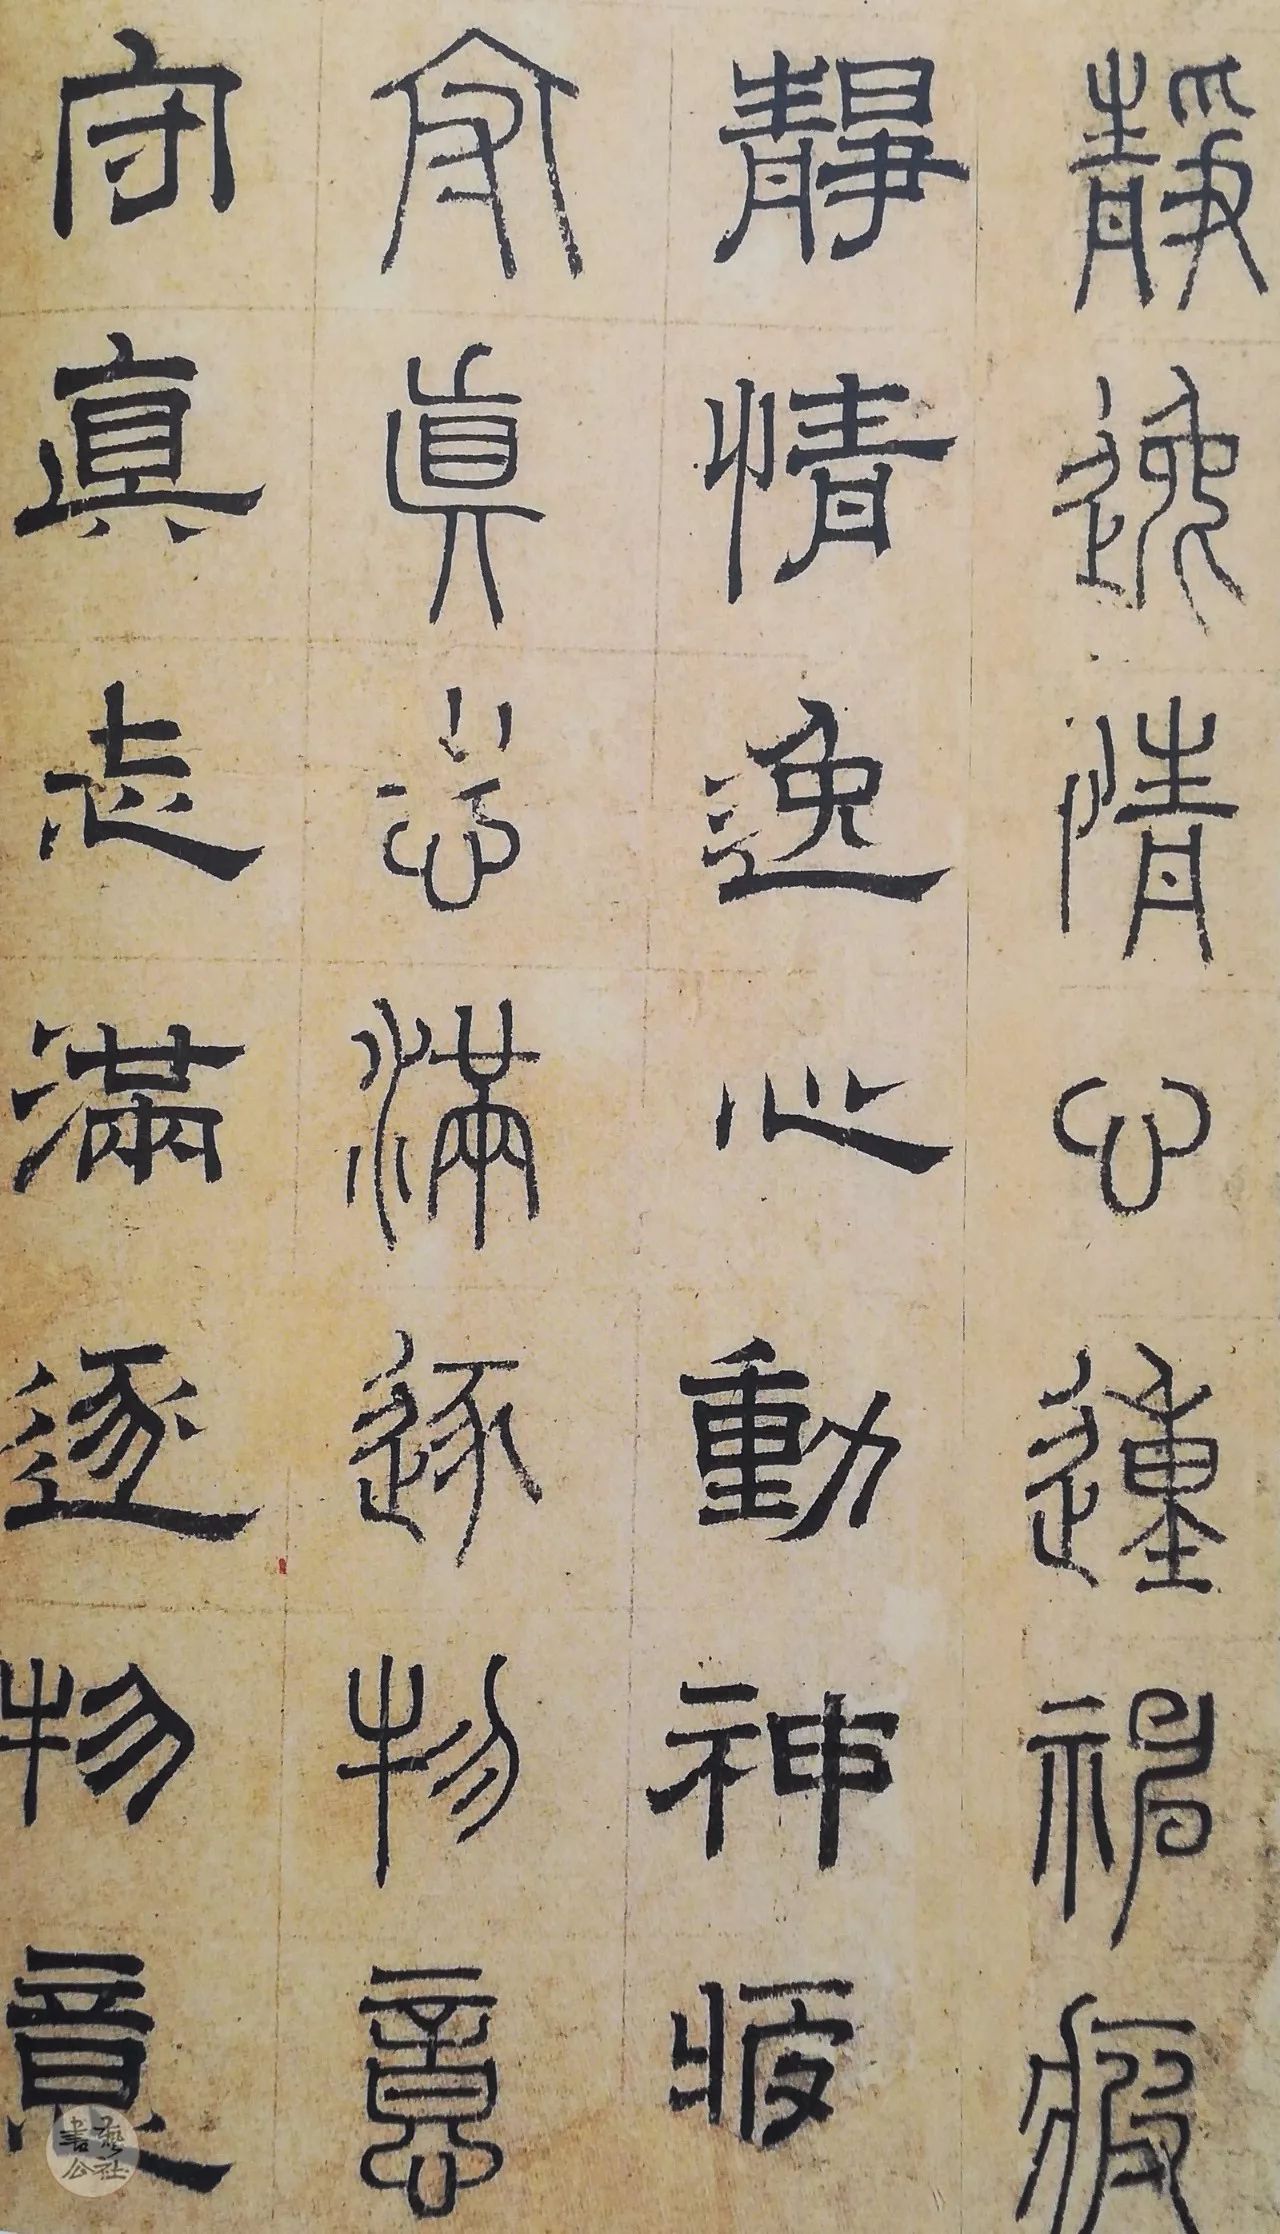 靜逸情心動神疲
靜情逸心動神疲
守真志滿逐物意
守真志滿逐物意
書藝公社